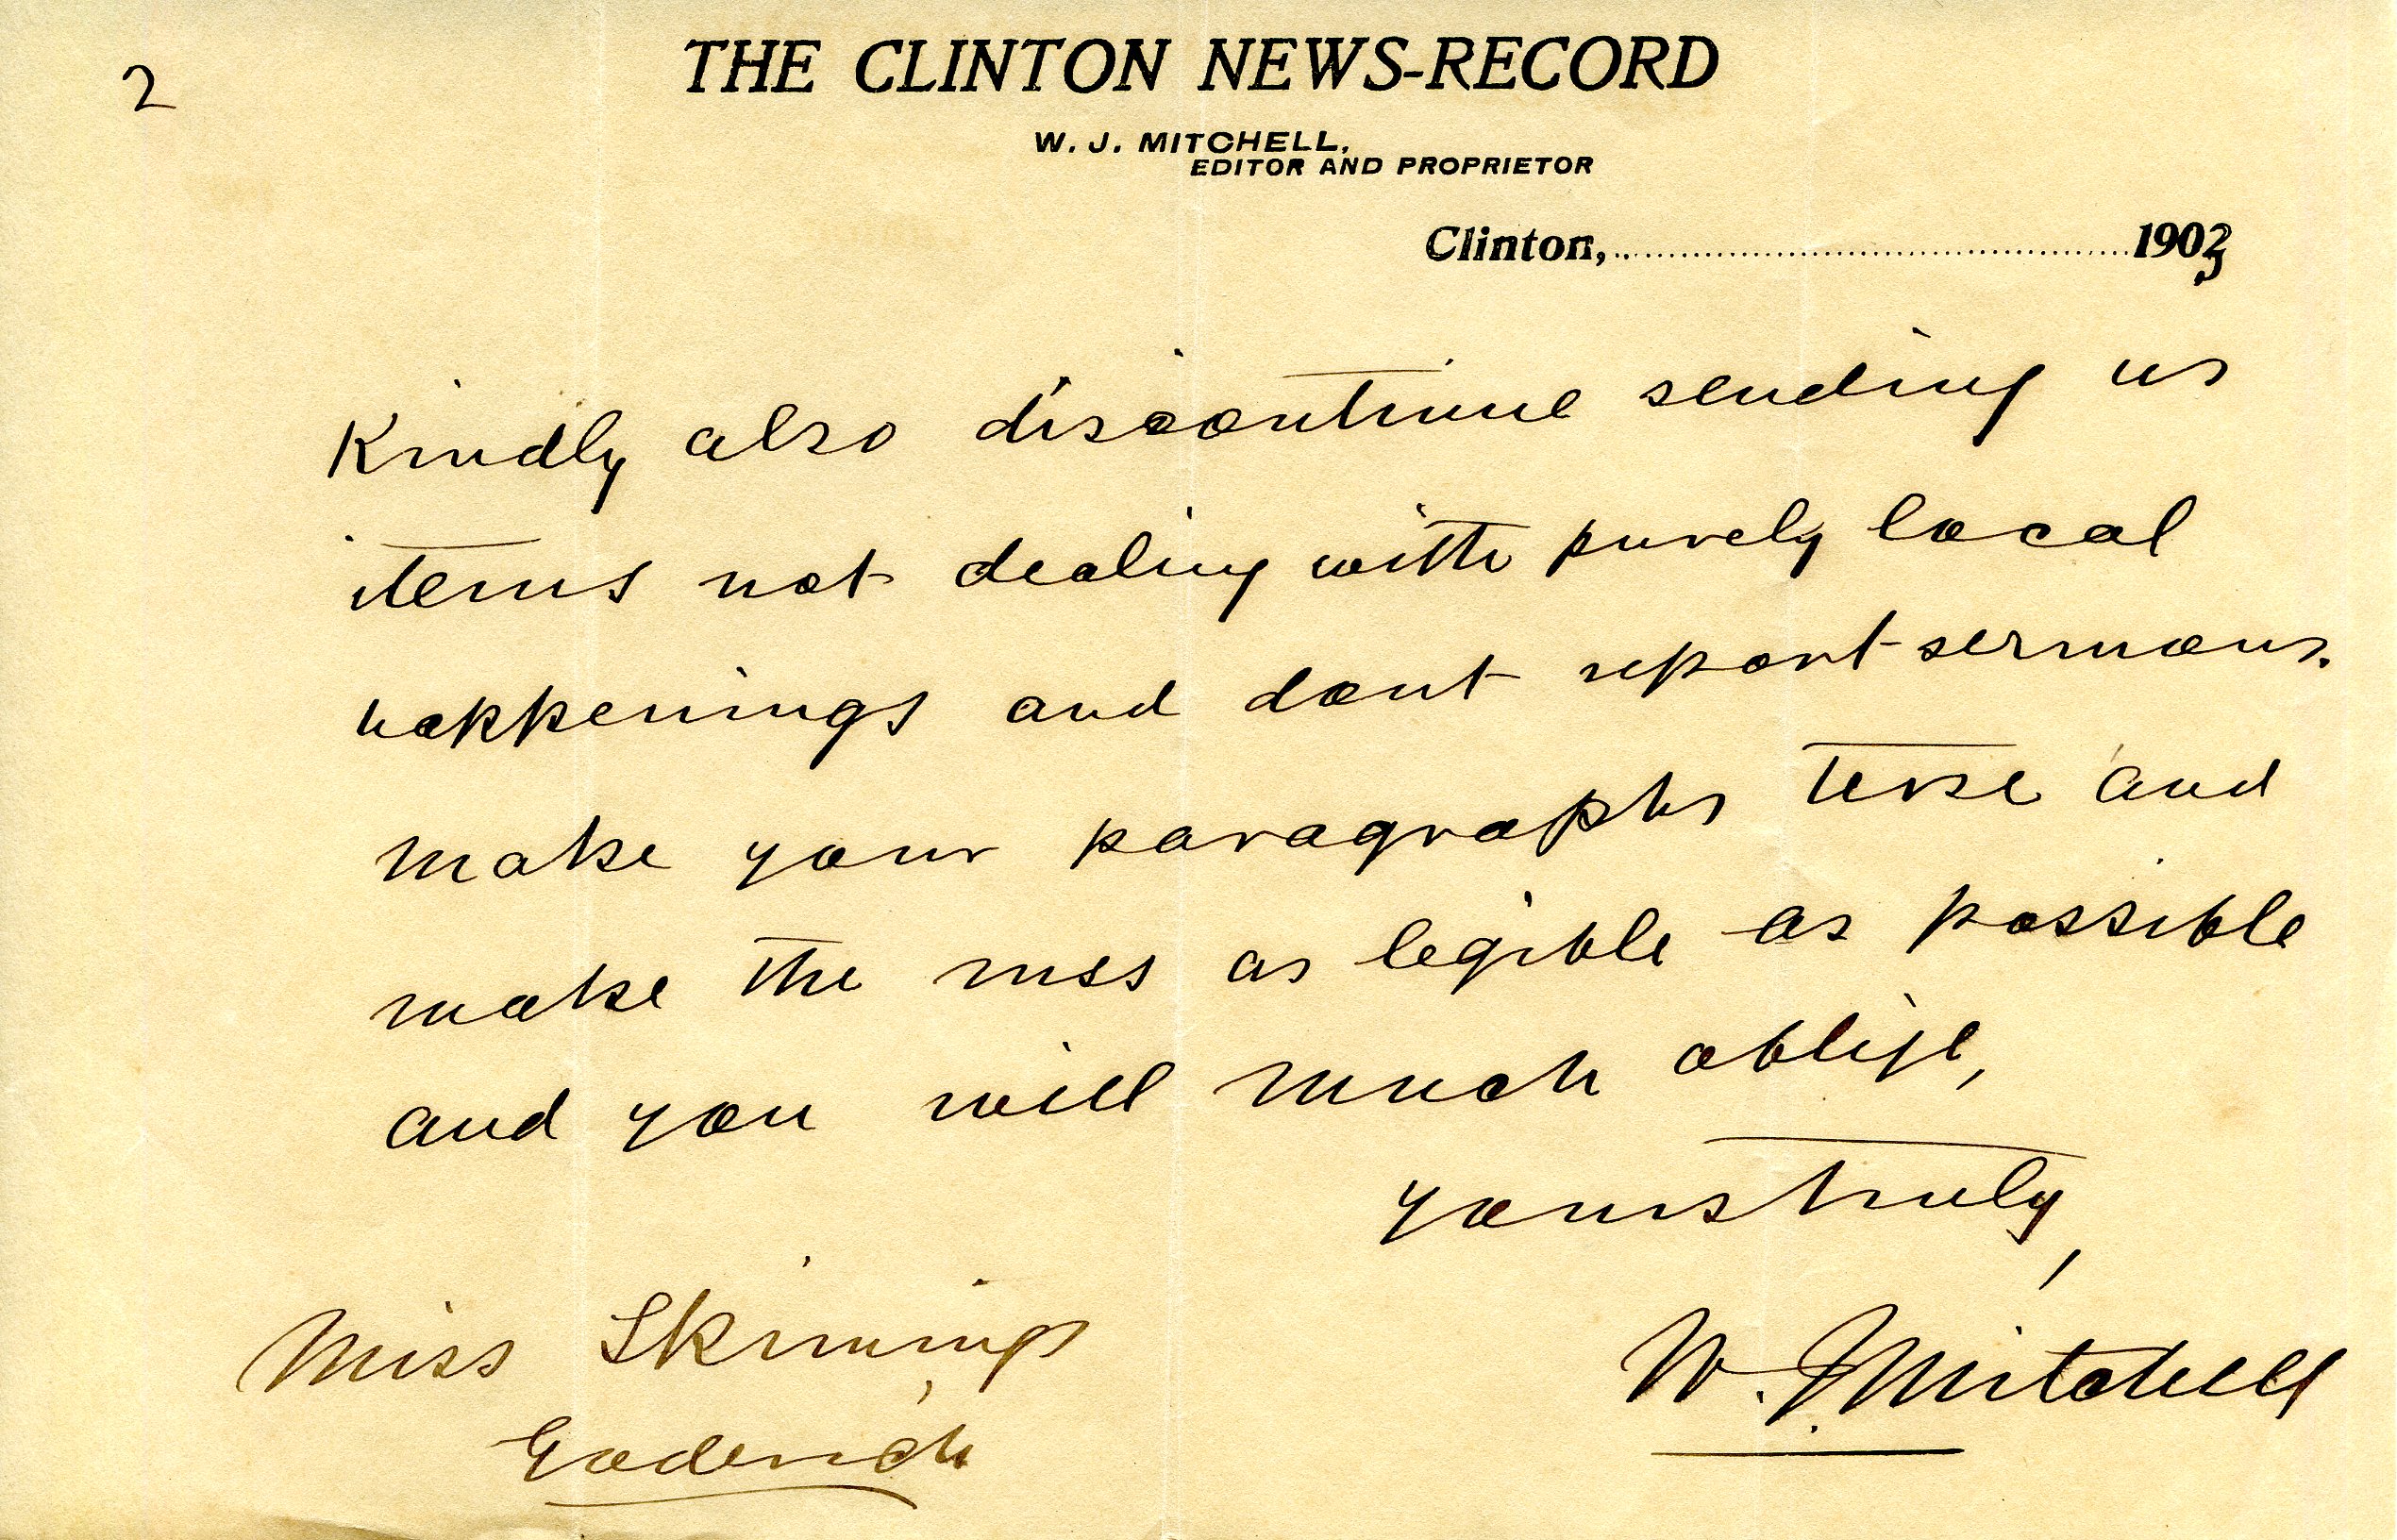 2
THE CLINTON NEWS-RECORD
W. J. MITCHELL,
EDITOR AND PROPRIETOR
Clinton, 1903
Kindly also discontinue sending us
items not dealing with purely local
happenings and dont report sermons.
make your paragraphs terse and
make the mss as legible as possible
and you will much oblige,
yours truly,
W. J. Mitchell
Miss Skimings,
Goderich